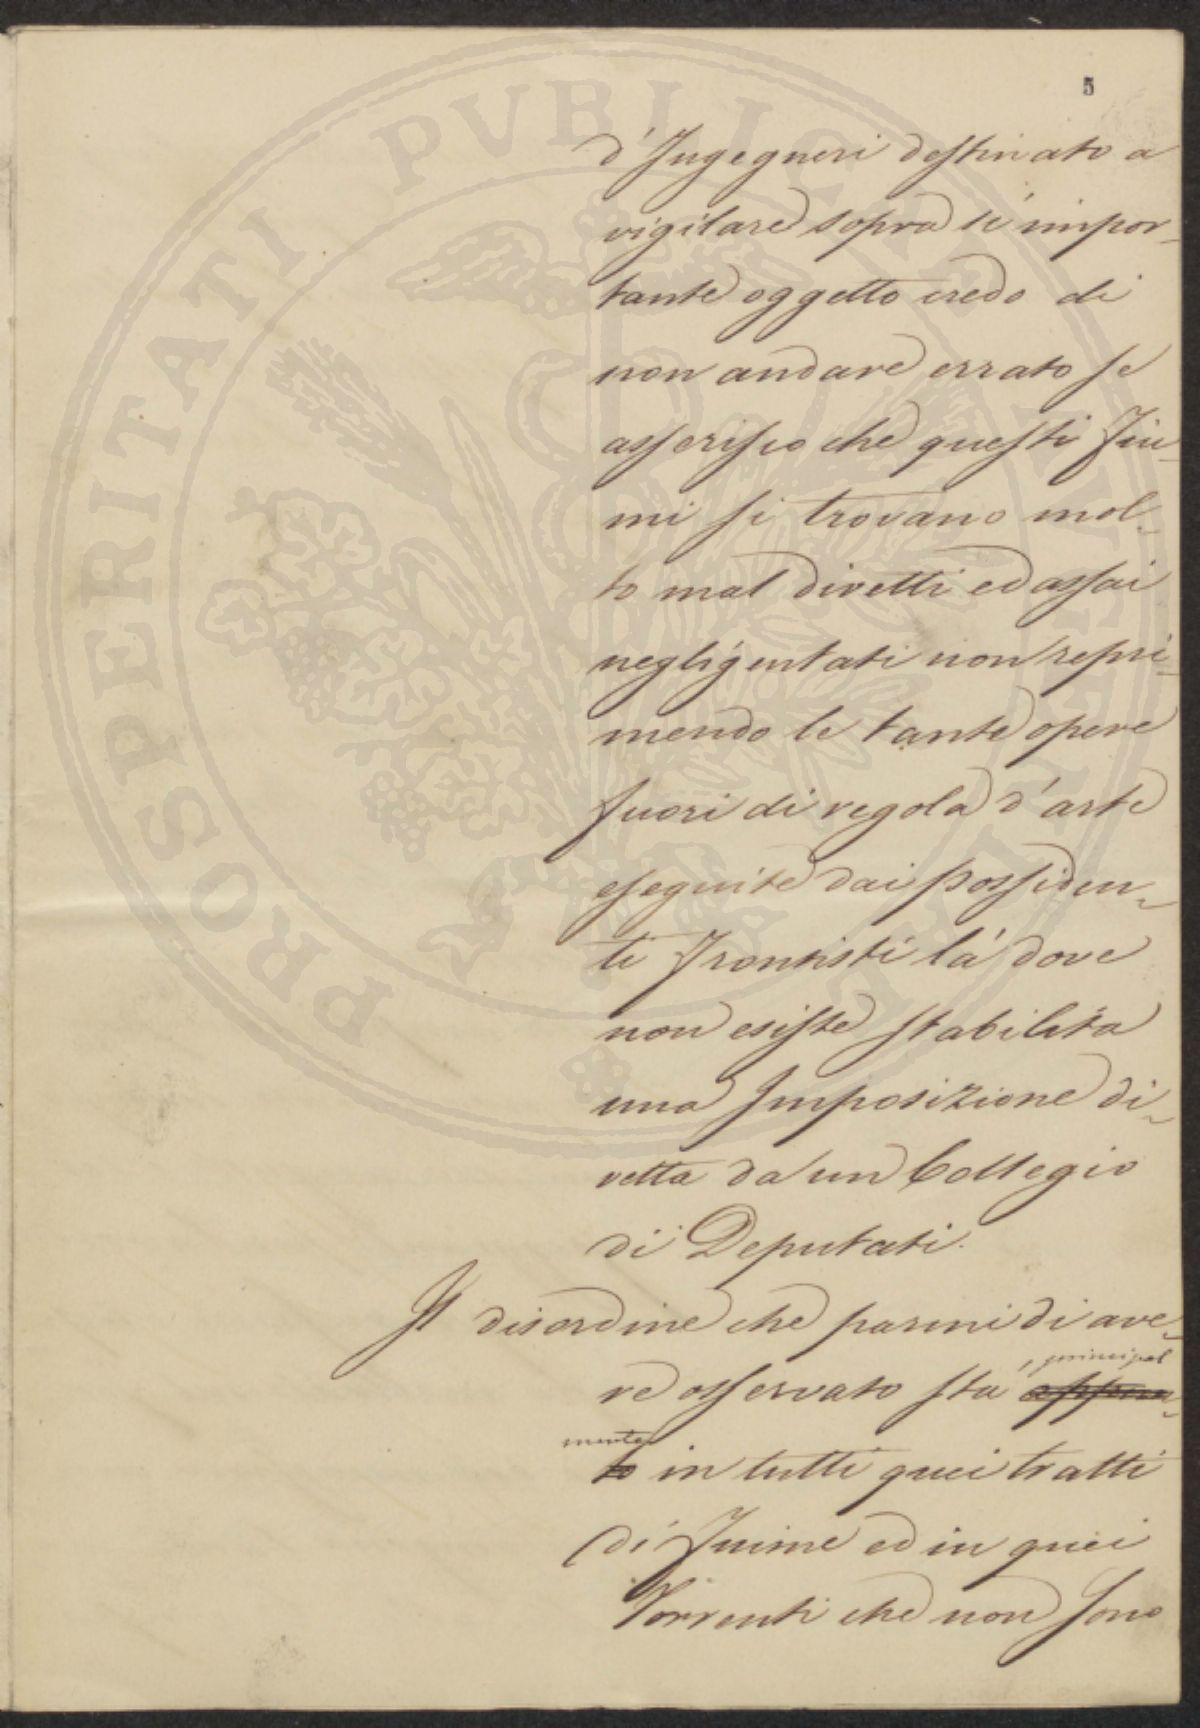 PROSPERITATI PVBLICAE
5
d'Ingegneri destinato a
vigilare sopra sì impor-
tante oggetto credo di
non andare errato se
asserisco che questi Fiu-
mi si trovano mol-
to mal diretti ed assai
negligentati non repri-
mendo le tante opere
fuori di regola d'arte
eseguite dai possiden-
ti Frontisti là dove
non esiste stabilita
una Imposizione di-
retta da un Collegio
di Deputati.
Il disordine che parmi di ave-
, principal
re osservato sta appun-
mente
to in tutti quei tratti
di Fiume ed in quei
Torrenti che non sono